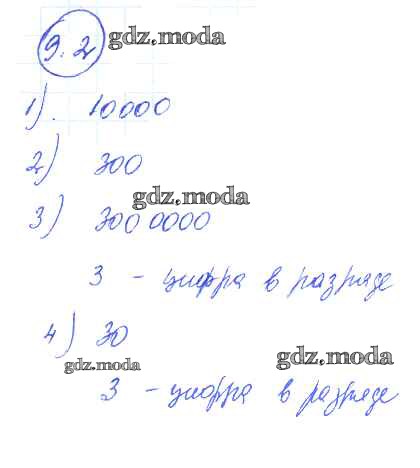 9.2 gdz.moda
1). 10000
2) 300
gdz.moda
3) 300 0000
3 - цифра в разряде
4) 30
gdz.moda gdz.moda
3 - цифра в разряде